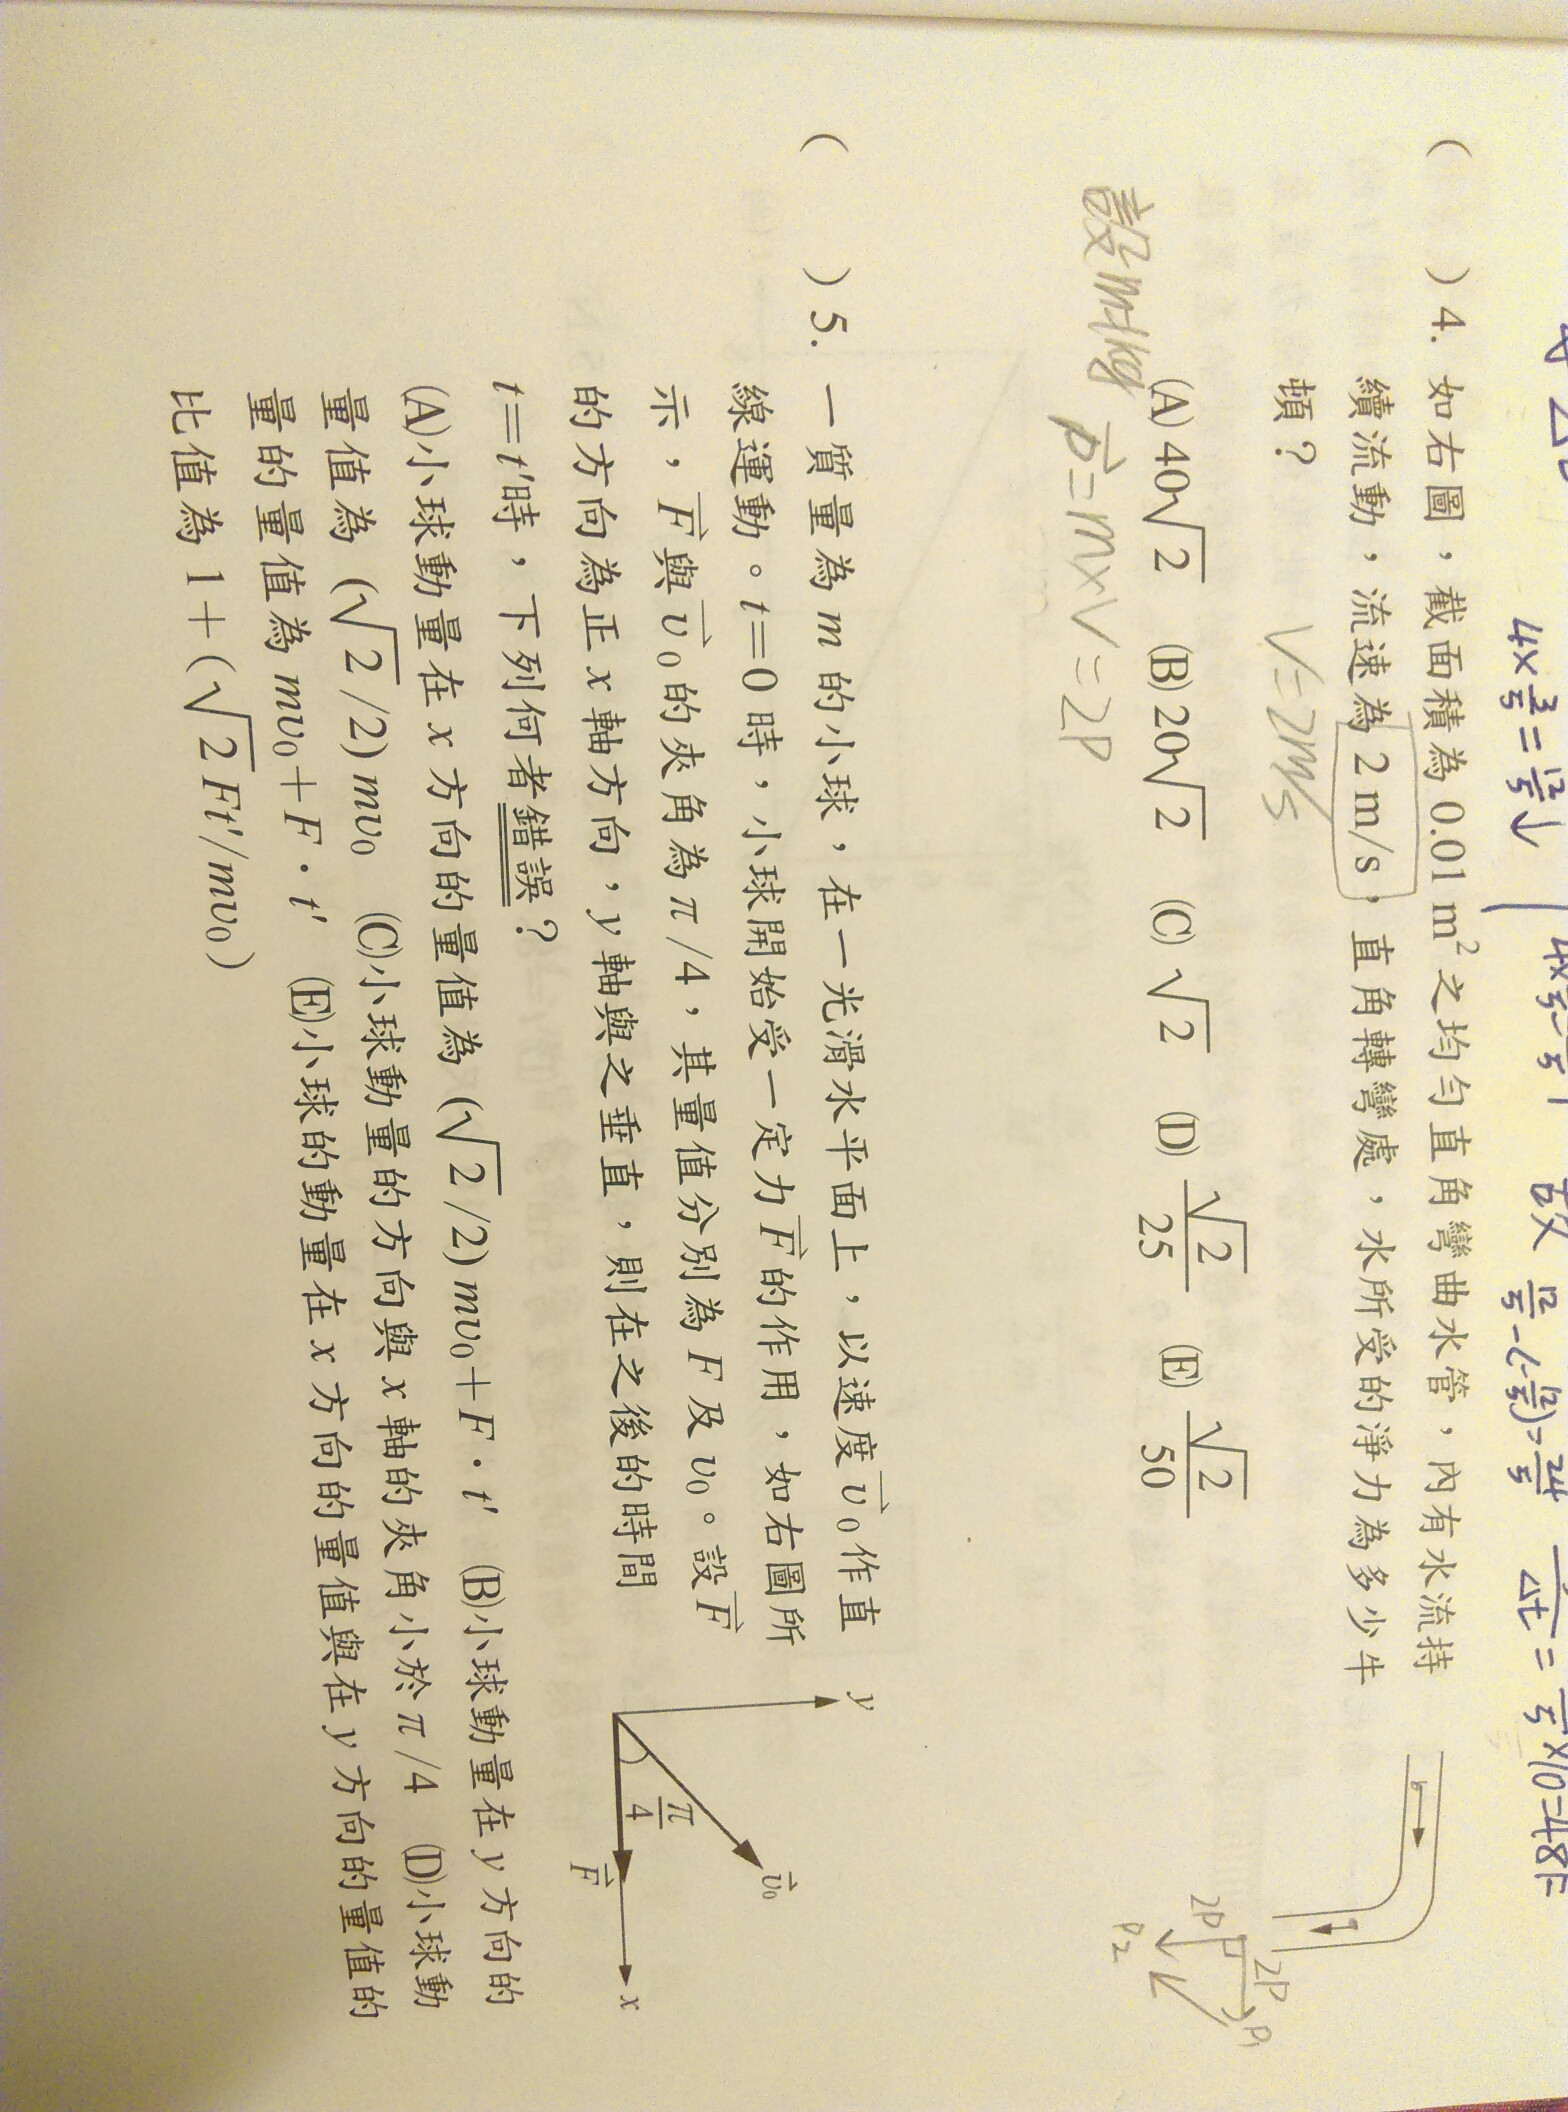 4×3/5=12/5↓
12/5-(-12/5)=24/5
( )4. 如右圖，截面積為 0.01 m² 之均勻直角彎曲水管，內有水流持
續流動，流速為 2 m/s，直角轉彎處，水所受的淨力為多少牛
頓？
V=2m/s
(A) 40√2 (B) 20√2 (C) √2 (D) √2/25 (E) √2/50
設m=1kg
p⃗=m×V=2P
2P
2P
P₁
P₂
( )5. 一質量為 m 的小球，在一光滑水平面上，以速度 v⃗₀ 作直
線運動。t＝0 時，小球開始受一定力 F⃗ 的作用，如右圖所
示，F⃗ 與 v⃗₀ 的夾角為 π/4，其量值分別為 F 及 v₀。設 F⃗
的方向為正 x 軸方向，y 軸與之垂直，則在之後的時間
t＝t′時，下列何者錯誤？
y
v⃗₀
π/4
F⃗
x
(A)小球動量在 x 方向的量值為 (√2/2) mv₀＋F．t′ (B)小球動量在 y 方向的
量值為 (√2/2) mv₀ (C)小球動量的方向與 x 軸的夾角小於 π/4 (D)小球動
量的量值為 mv₀＋F．t′ (E)小球的動量在 x 方向的量值與在 y 方向的量值的
比值為 1＋(√2 Ft′/mv₀)